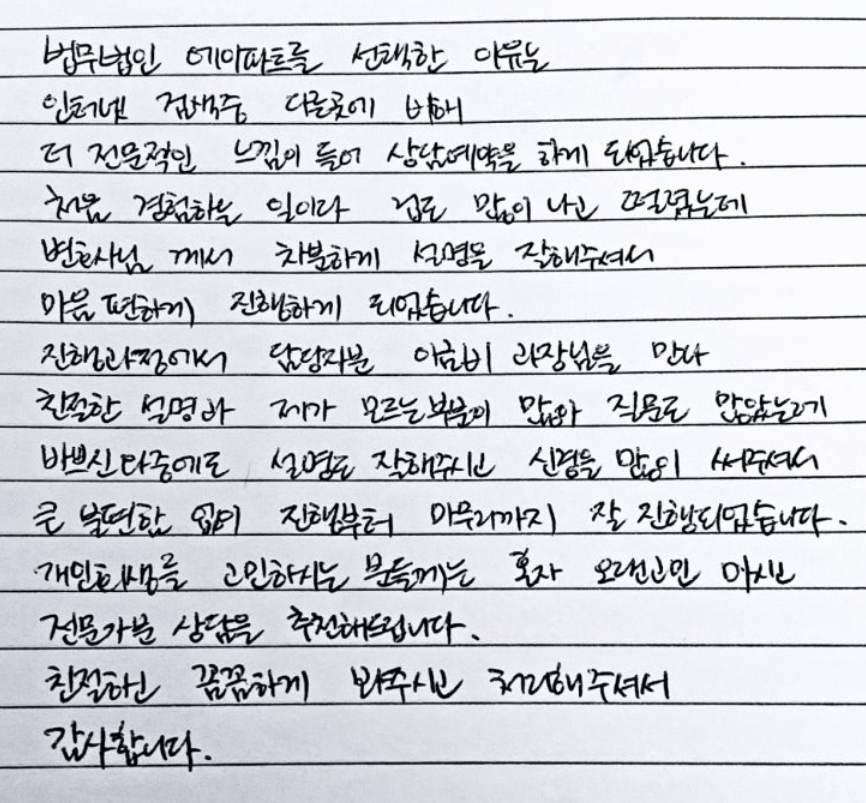 법무법인 에이파트를 선택한 이유는
인터넷 검색중 다른곳에 비해
더 전문적인 느낌이 들어 상담예약을 하게 되었습니다.
처음 경험하는 일이라 겁도 많이 나고 떨렸는데
변호사님 께서 차분하게 설명을 잘해주셔서
마음 편하게 진행하게 되었습니다.
진행과정에서 담당자분 이금비 과장님을 만나
친절한 설명과 제가 모르는부분이 많아 질문도 많았는데
바쁘신 와중에도 설명도 잘해주시고 신경을 많이 써주셔서
큰 불편함 없이 진행부터 마무리까지 잘 진행되었습니다.
개인회생을 고민하시는 분들께는 혼자 오랜고민 마시고
전문가분 상담을 추천해드립니다.
친절하고 꼼꼼하게 봐주시고 처리해주셔서
감사합니다.